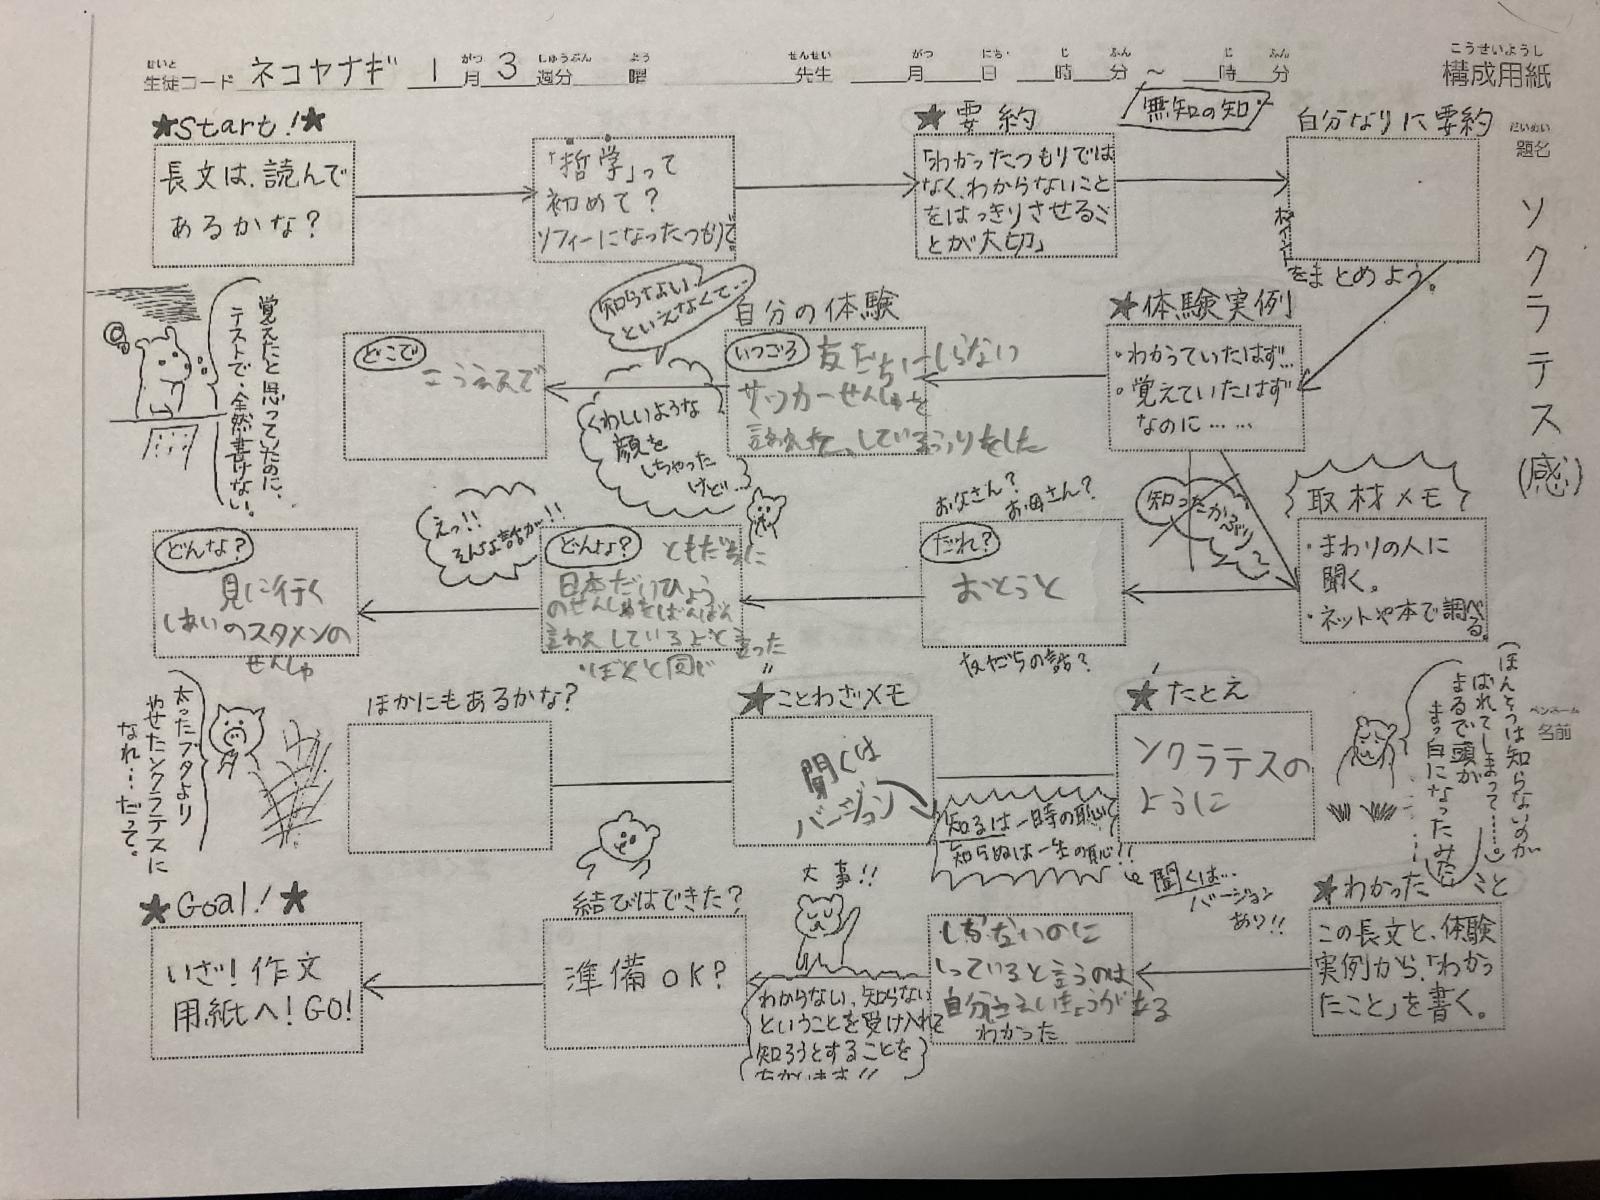 せいと
生徒コード ネコヤナギ 1月3週分 曜 先生 月 日 時 分 ~ 時 分
がつ しゅうぶん よう せんせい がつ にち じ ふん じ ふん
こうせいようし
構成用紙
だいめい
題名
ソクラテス(感)
ペンネーム
名前
★Start!★
長文は、読んで
あるかな?
「哲学」って
初めて?
ソフィーになったつもりで。
★要約
「わかったつもりでは
なく、わからないこと
をはっきりさせるこ
とが大切」
無知の知
自分なりに要約
ポイント
をまとめよう。
★体験実例
・わかっていたはず…
・覚えていたはず
なのに……
自分の体験
いつごろ
友だちにしらない
サッカーせんしゅを
言われて、しているふりをした
知らないい
といえなくて…
くわしいような
顔を
しちゃった
けど…
どこで
こうえんで
覚えたと思っていたのに、
テストで、全然書けない。
取材メモ
・まわりの人に
聞く。
・ネットや本で調べる。
知ったかぶり
お父さん?
お母さん?
だれ?
おとうと
友だちの話?
どんな?
ともだちに
日本だいひょう
のせんしゅをばんばん
言われしているよと言った
"ぼくと同じ"
えっ!!
そんな話が!!
どんな?
見に行く
しあいのスタメンの
せんしゅ
ほんとうは知らないのが
ばれてしまって……。
まるで頭が
まっ白になったみたい
★たとえ
ソクラテスの
ように
★ことわざメモ
聞くは
バージョン
知るは一時の恥
知らぬは一生の恥!!
聞くは…
バージョン
あり!!
ほかにもあるかな?
太ったブタより
やせたソクラテスに
なれ…だって。
★わかったこと
この長文と、体験
実例から、「わかっ
たこと」を書く。
しらないのに
しっていると言うのは
自分にえいきょうがある
わかった
大事!!
わからない、知らない
ということを受け入れて
知ろうとすることを
結びはできた?
準備OK?
★Goal!★
いざ!作文
用紙へ!GO!